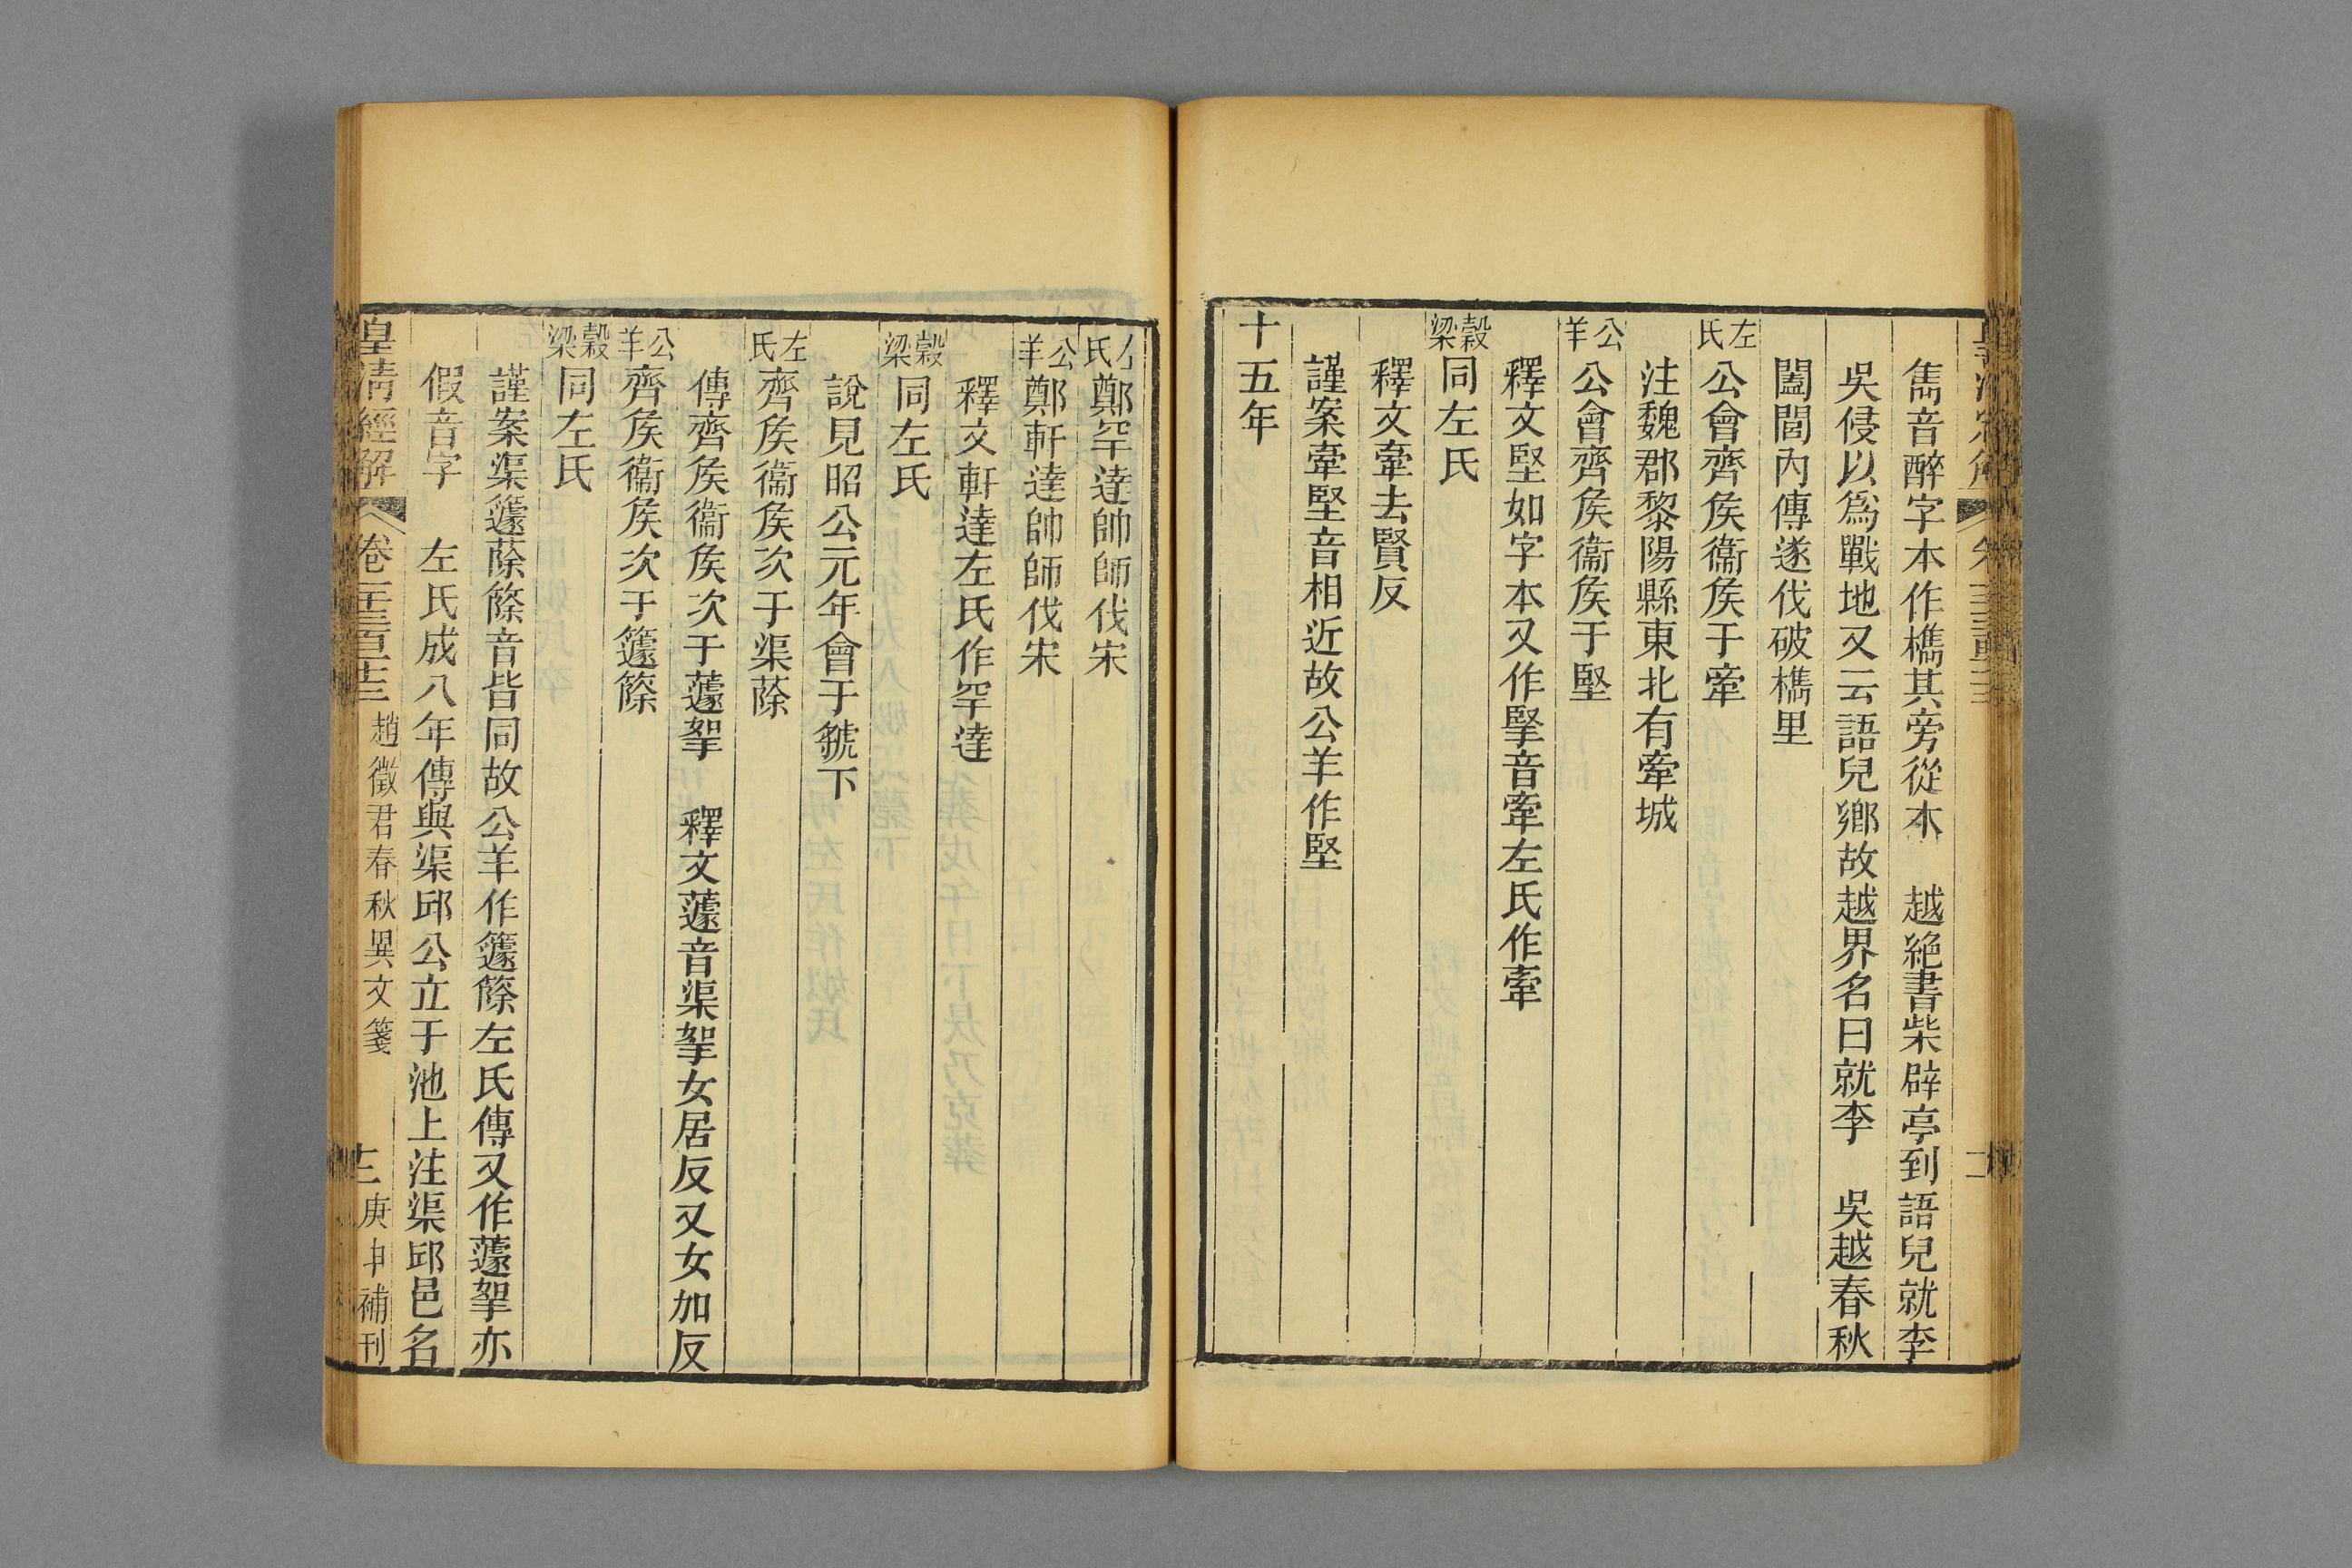 雋音醉字本作檇其旁從木　越絶書柴辟亭到語兒就李
吳侵以爲戰地又云語兒鄉故越界名曰就李　吳越春秋
闔閭內傳遂伐破檇里
左氏公會齊侯衞侯于牽
注魏郡黎陽縣東北有牽城
公羊公會齊侯衞侯于堅
釋文堅如字本又作掔音牽左氏作牽
穀梁同左氏
釋文牽去賢反
謹案牽堅音相近故公羊作堅
十五年
左氏鄭罕達帥師伐宋
公羊鄭軒達帥師伐宋
釋文軒達左氏作罕達
穀梁同左氏
說見昭公元年會于虢下
左氏齊侯衞侯次于渠蒢
傳齊侯衞侯次于蘧挐　釋文蘧音渠挐女居反又女加反
公羊齊侯衞侯次于籧篨
穀梁同左氏
謹案渠籧蒢篨音皆同故公羊作籧篨左氏傳又作蘧挐亦
假音字　左氏成八年傳與渠邱公立于池上注渠邱邑名
皇淸經解　卷一千三百十三　趙徵君春秋異文箋　十二　庚申補刊